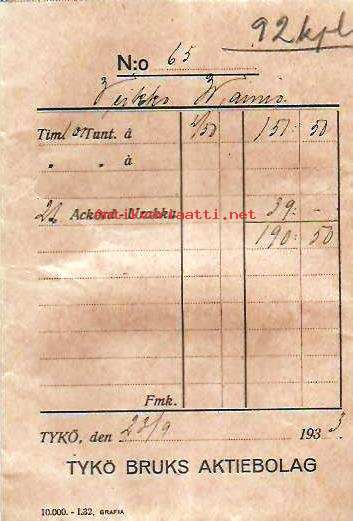 92 kpl
N:o 65
Veikko
Tim. Tunt. à 1/50 151: 50
„ „ à
22 Ackord-Urakka 39: -
190: 50
Fmk.
TYKÖ, den 23/9 1933.
TYKÖ BRUKS AKTIEBOLAG
10.000. - 1.32, GRAFIA